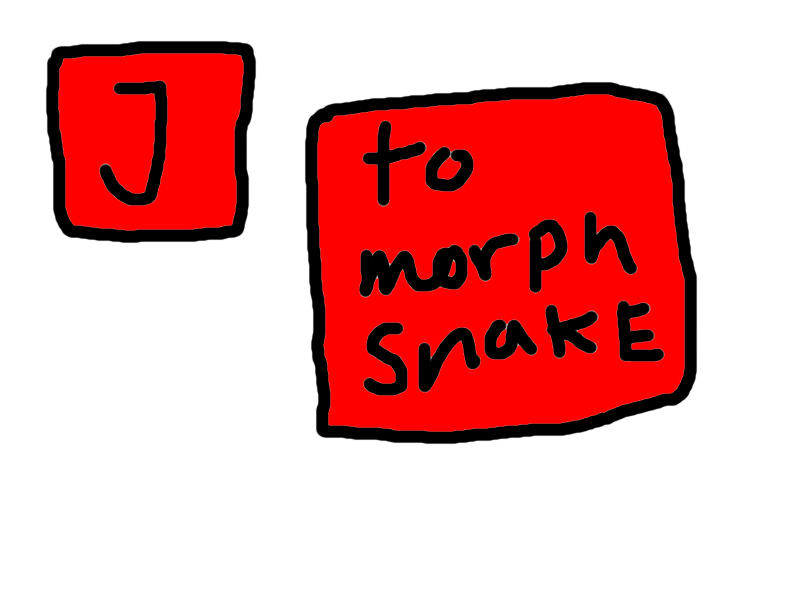 J
to
morph
SnakE